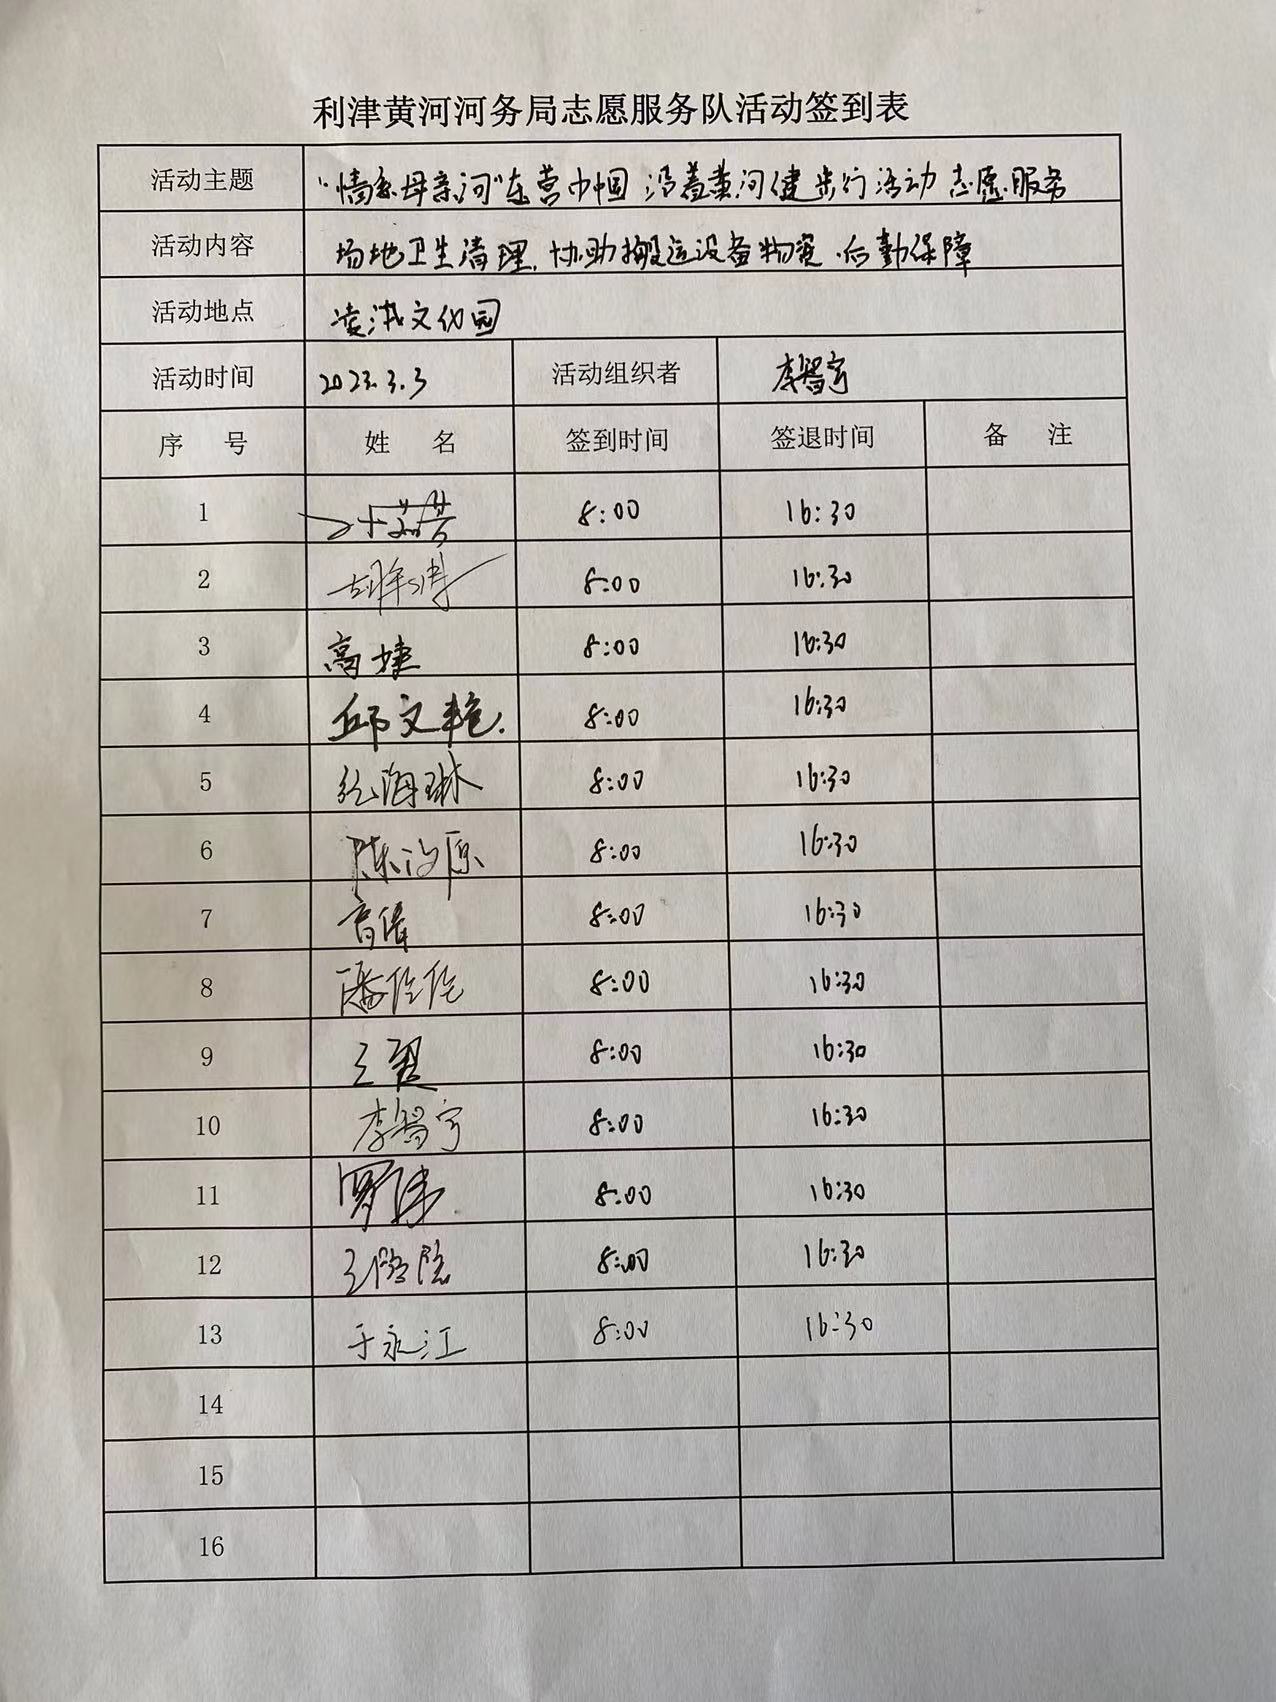 利津黄河河务局志愿服务队活动签到表
活动主题 "情系母亲河"东营市中国 沿着黄河健步行活动 志愿服务
活动内容 场地卫生清理、协助搬运设备物资、后勤保障
活动地点 凌汛文化园
活动时间 2023.3.3 活动组织者 李智宇
序 号 姓 名 签到时间 签退时间 备 注
1 8:00 16:30
2 8:00 16:30
3 高婕 8:00 16:30
4 邱文艳 8:00 16:30
5 纪海琳 8:00 16:30
6 陈汐原 8:00 16:30
7 8:00 16:30
8 潘伦伦 8:00 16:30
9 8:00 16:30
10 李智宇 8:00 16:30
11 罗 8:00 16:30
12 8:00 16:30
13 于永江 8:00 16:30
14
15
16